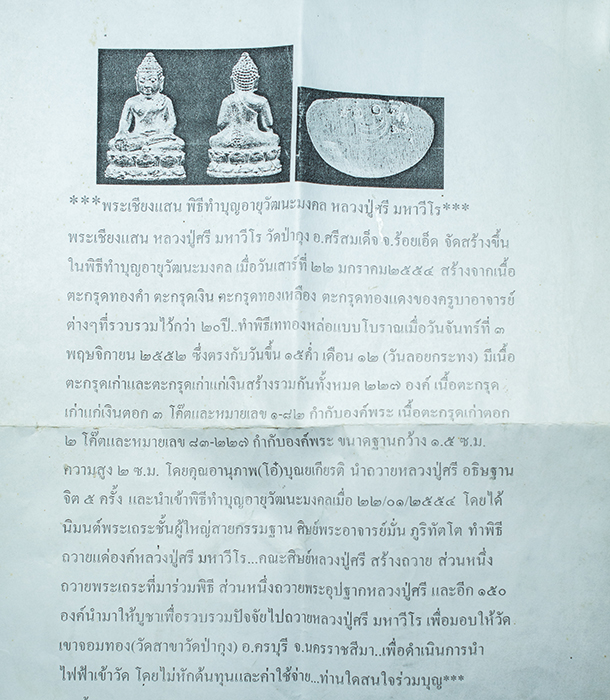 ***พระเชียงแสน พิธีทำบุญอายุวัฒนะมงคล หลวงปู่ศรี มหาวีโร***
พระเชียงแสน หลวงปู่ศรี มหาวีโร วัดป่ากุง อ.ศรีสมเด็จ จ.ร้อยเอ็ด จัดสร้างขึ้น
ในพิธีทำบุญอายุวัฒนะมงคล เมื่อวันเสาร์ที่ ๒๒ มกราคม๒๕๕๔ สร้างจากเนื้อ
ตะกรุดทองคำ ตะกรุดเงิน ตะกรุดทองเหลือง ตะกรุดทองแดงของครูบาอาจารย์
ต่างๆที่รวบรวมไว้กว่า ๒๐ปี..ทำพิธีเททองหล่อแบบโบราณเมื่อวันจันทร์ที่ ๓
พฤษจิกายน ๒๕๕๒ ซึ่งตรงกับวันขึ้น ๑๕ค่ำ เดือน ๑๒ (วันลอยกระทง) มีเนื้อ
ตะกรุดเก่าและตะกรุดเก่าแก่เงินสร้างรวมกันทั้งหมด ๒๒๗ องค์ เนื้อตะกรุด
เก่าแก่เงินตอก ๓ โค๊ตและหมายเลข ๑-๘๒ กำกับองค์พระ เนื้อตะกรุดเก่าตอก
๒ โค๊ตและหมายเลข ๘๓-๒๒๗ กำกับองค์พระ ขนาดฐานกว้าง ๑.๕ ซ.ม.
ความสูง ๒ ซ.ม. โดยคุณอานุภาพ(โอ๋)บุณยเกียรติ นำถวายหลวงปู่ศรี อธิษฐาน
จิต ๕ ครั้ง และนำเข้าพิธีทำบุญอายุวัฒนะมงคลเมื่อ ๒๒/๐๑/๒๕๕๔ โดยได้
นิมนต์พระเถระชั้นผู้ใหญ่สายกรรมฐาน ศิษย์พระอาจารย์มั่น ภูริทัตโต ทำพิธี
ถวายแด่องค์หลวงปู่ศรี มหาวีโร...คณะศิษย์หลวงปู่ศรี สร้างถวาย ส่วนหนึ่ง
ถวายพระเถระที่มาร่วมพิธี ส่วนหนึ่งถวายพระอุปฐากหลวงปู่ศรี และอีก ๑๕๐
องค์นำมาให้บูชาเพื่อรวบรวมปัจจัยไปถวายหลวงปู่ศรี มหาวีโร เพื่อมอบให้วัด
เขาจอมทอง(วัดสาขาวัดป่ากุง) อ.ครบุรี จ.นครราชสีมา..เพื่อดำเนินการนำ
ไฟฟ้าเข้าวัด โดยไม่หักต้นทุนและค่าใช้จ่าย...ท่านใดสนใจร่วมบุญ***